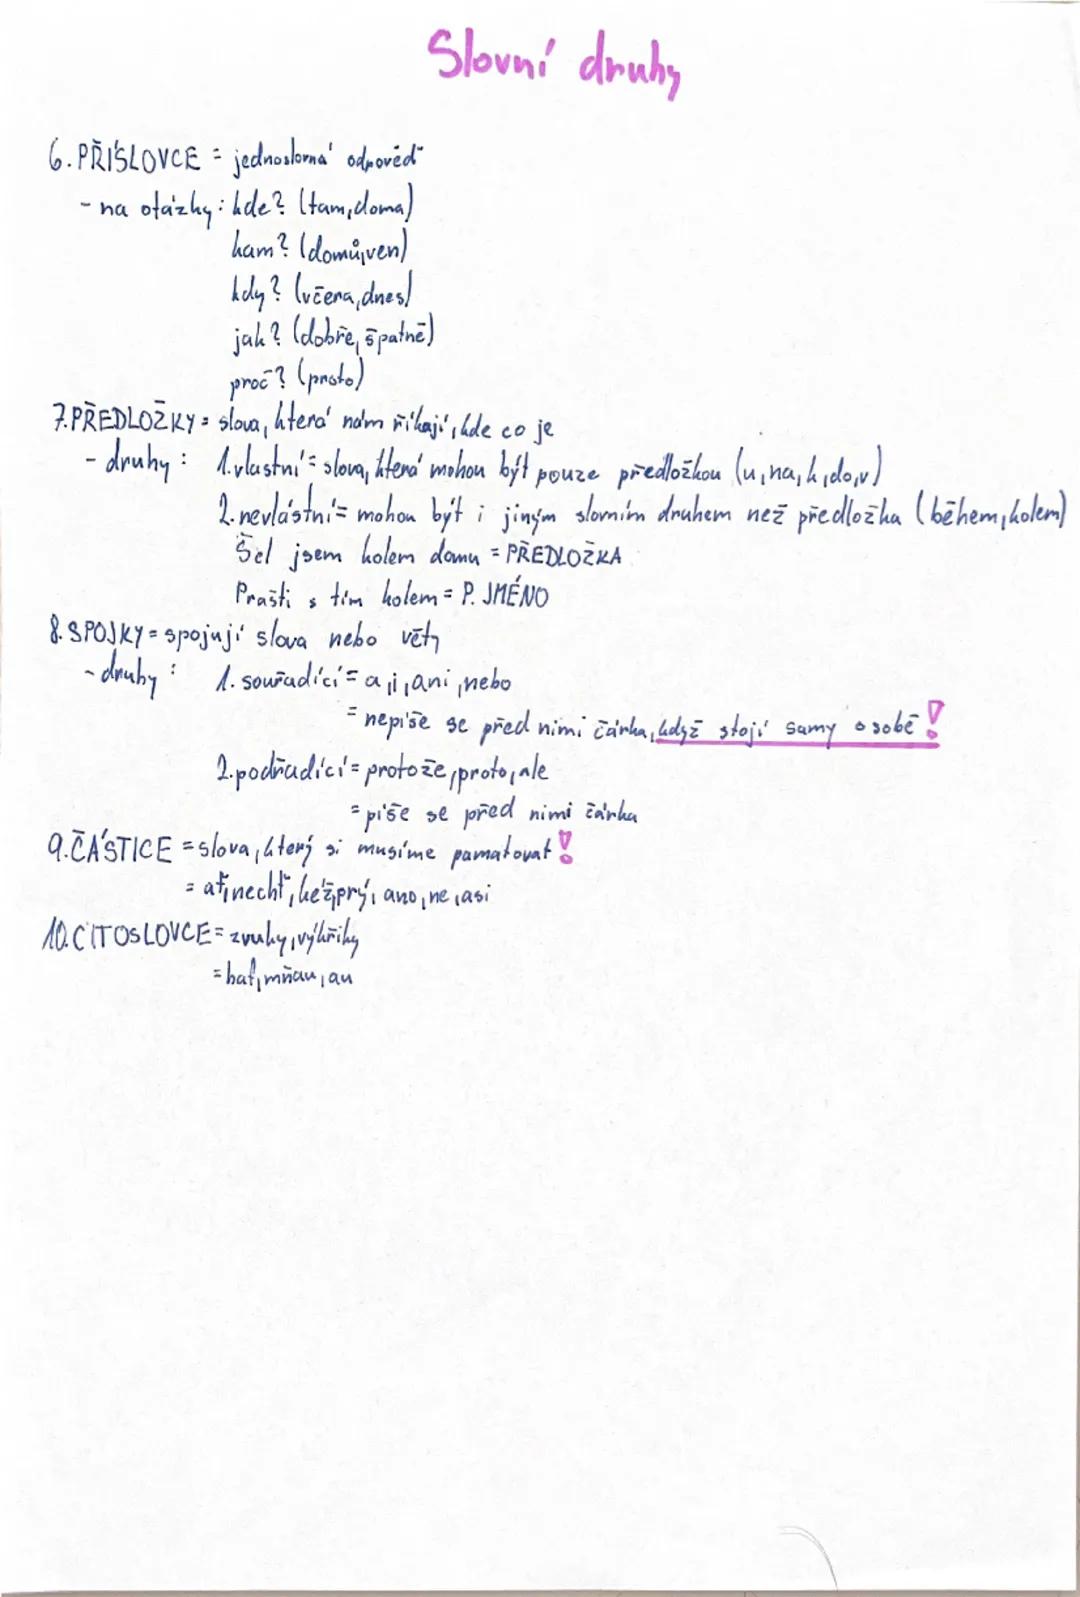 Slovní druhy
6. PŘÍSLOVCE = jednoslovná odpověď
- na otázky: kde? (tam, doma)
kam? (domů, ven)
kdy? (včera, dnes)
jak? (dobře, špatně)
proč? (proto)
7. PŘEDLOŽKY = slova, která nám říkají, kde co je
- druhy: 1. vlastní = slova, která mohou být pouze předložkou (u, na, k, do, v)
2. nevlástní = mohou být i jiným slovním druhem než předložka (během, kolem)
Šel jsem kolem domu = PŘEDLOŽKA
Prašti s tím kolem = P. JMÉNO
8. SPOJKY = spojují slova nebo věty
- druhy: 1. souřadící = a, i, ani, nebo
= nepíše se před nimi čárka, když stojí samy o sobě!
2. podřadící = protože, proto, ale
= píše se před nimi čárka
9. ČÁSTICE = slova, který si musíme pamatovat!
= ať, nechť, kéž, prý, ano, ne, asi
10. CITOSLOVCE = zvuky, výkřiky
= haf, mňau, au